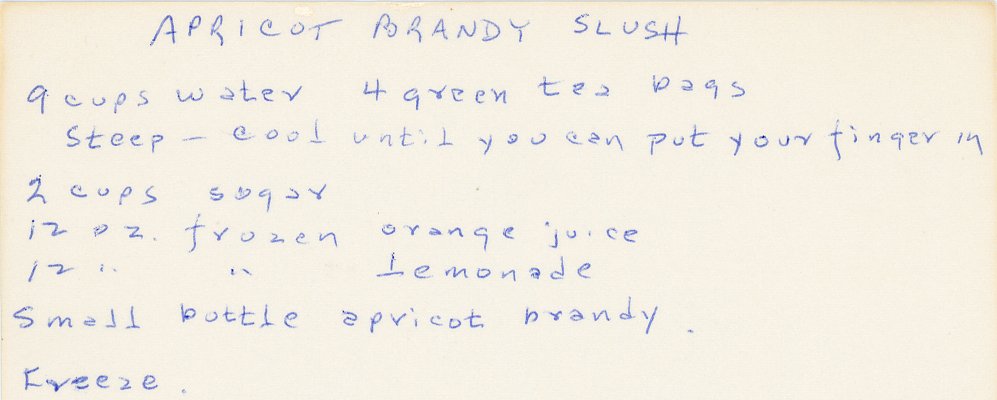 APRICOT BRANDY SLUSH
9 cups water 4 green tea bags
Steep - cool until you can put your finger in
2 cups sugar
12 oz. frozen orange juice
12 " " lemonade
Small bottle apricot brandy.
Freeze.